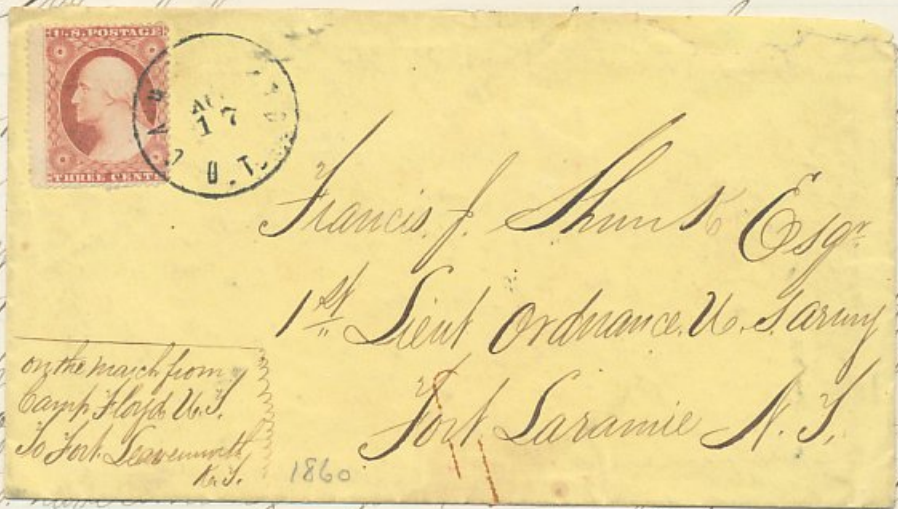 U.S. POSTAGE
THREE CENTS
17
U.T.
Francis. J. Shunk Esqr
1st Lieut Ordnance. U. S. army
Fort Laramie N. T.
on the march from
Camp Floyd U. T.
To Fort Leavenworth
K. T.
1860